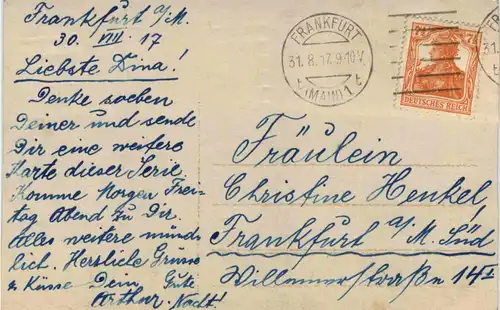 Frankfurt a/M.
30. VIII. 17
Liebste Dina!
Denke soeben
Deiner und sende
Dir eine weitere
Karte dieser Serie.
Komme Morgen Frei-
tag Abend zu Dir.
Alles weitere münd-
lich. Herzliche Grüsse
& Küsse Dein Gute
Arthur. Nacht!
FRANKFURT
31.8.17.9-10V.
(MAIN) 1
t t
31.
7½ 7½
DEUTSCHES REICH
Fräulein
Christine Henkel,
Frankfurt a/M. Süd
Willemerstraße 14 I